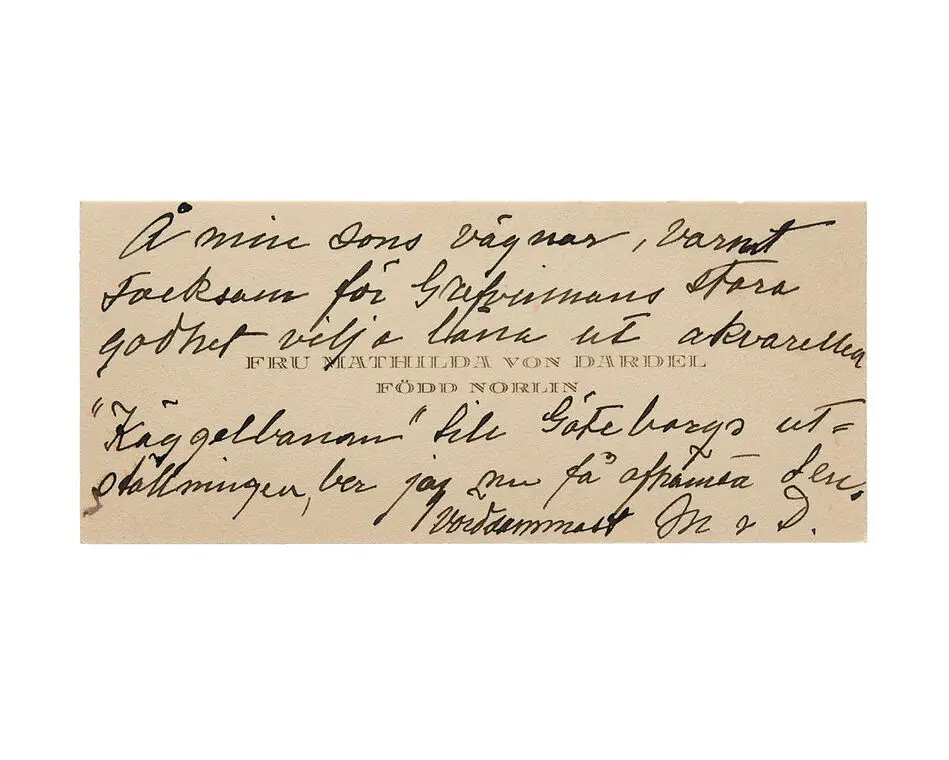 Å min sons vägnar, varmt
tacksam för Grefvinnans stora
godhet vilja låna ut akvarellen
FRU MATHILDA VON DARDEL
FÖDD NORLIN
"Käggelbanan" till Göteborgs ut=
ställningen, ber jag nu få afhämta den.
Vördsammast M v D.